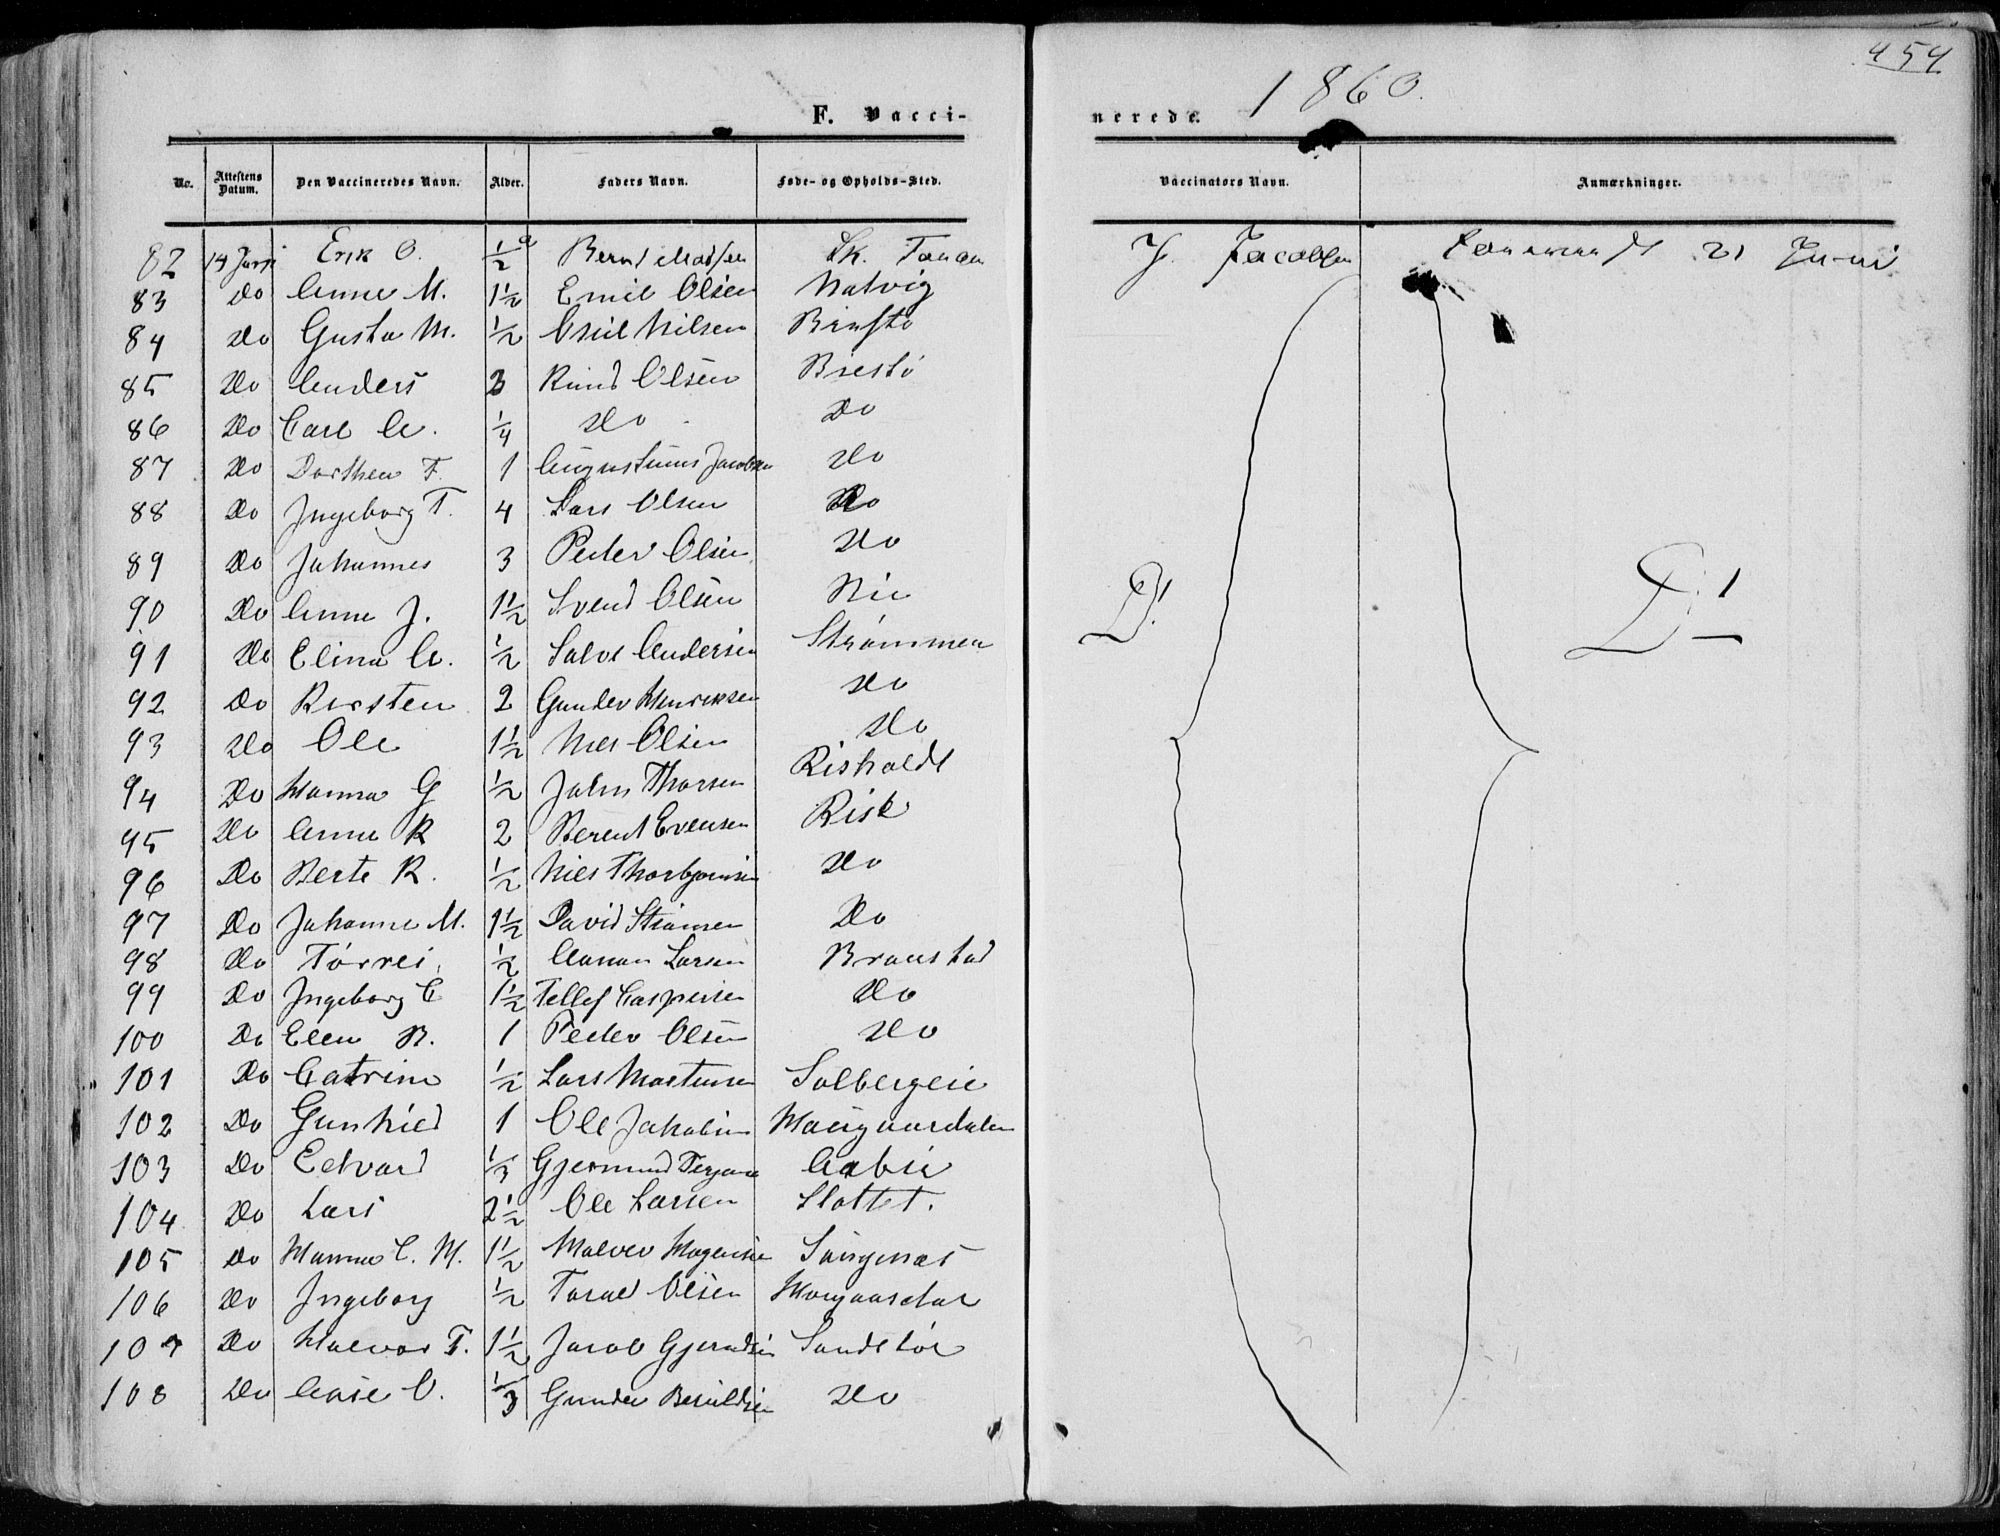 454
1860.
F. Vacci-
nerede.
No. Attestens Datum. Den Vaccineredes Navn. Alder. Faders Navn. Føde- og Opholds-Sted. Vaccinators Navn. Anmærkninger.
82 14 Juni Erik O. ½ a Bernt Madsen J. Jacobsen 21 Juni
83 Do Anne M. 1½ Emil Olsen Natvig
84 Do Gusta M. ½ Nilsen
85 Do Anders 3 Knud Olsen
86 Do Carl A. ¼ Do Do
87 Do Dorthea F. 1 Augustinus Jacobsen Do
88 Do Ingeborg T. 4 Lars Olsen Do
89 Do Johannes 3 Peder Olsen Do
90 Do Anne J. 1½ Svend Olsen
91 Do Elina A. ½ Salve Andersen Strømmen
92 Do Kirsten 2 Gunder Henriksen Do
93 Do Ole 1½ Niels Olsen Do
94 Do Hanna G ½ John Thorsen Risholdt
95 Do Anne K 2 Berent Evensen Risk
96 Do Berte K. ½ Niels Thorbjørnsen Do
97 Do Johanne M. 1½ David Do
98 Do Tørres ½ Aanon Larsen Braastad
99 Do Ingeborg C 1½ Tellef Caspersen Do
100 Do Elen B. 1 Peder Olsen Do
101 Do Catrine ½ Lars Mortensen Solbergeie
102 Do Gunhild 1 Ole Jakobsen
103 Do Edvard ⅓ Gjermund
104 Do Lars 2½ Ole Larsen Slottet.
105 Do Hanne C. M. 1½ Halvor Mogensen Songenæs
106 Do Ingeborg ½ Taral Olsen
107 Do Halvor T. 1½ Jacob
108 Do Aase O. ⅓ Gunder Do
Do
Do